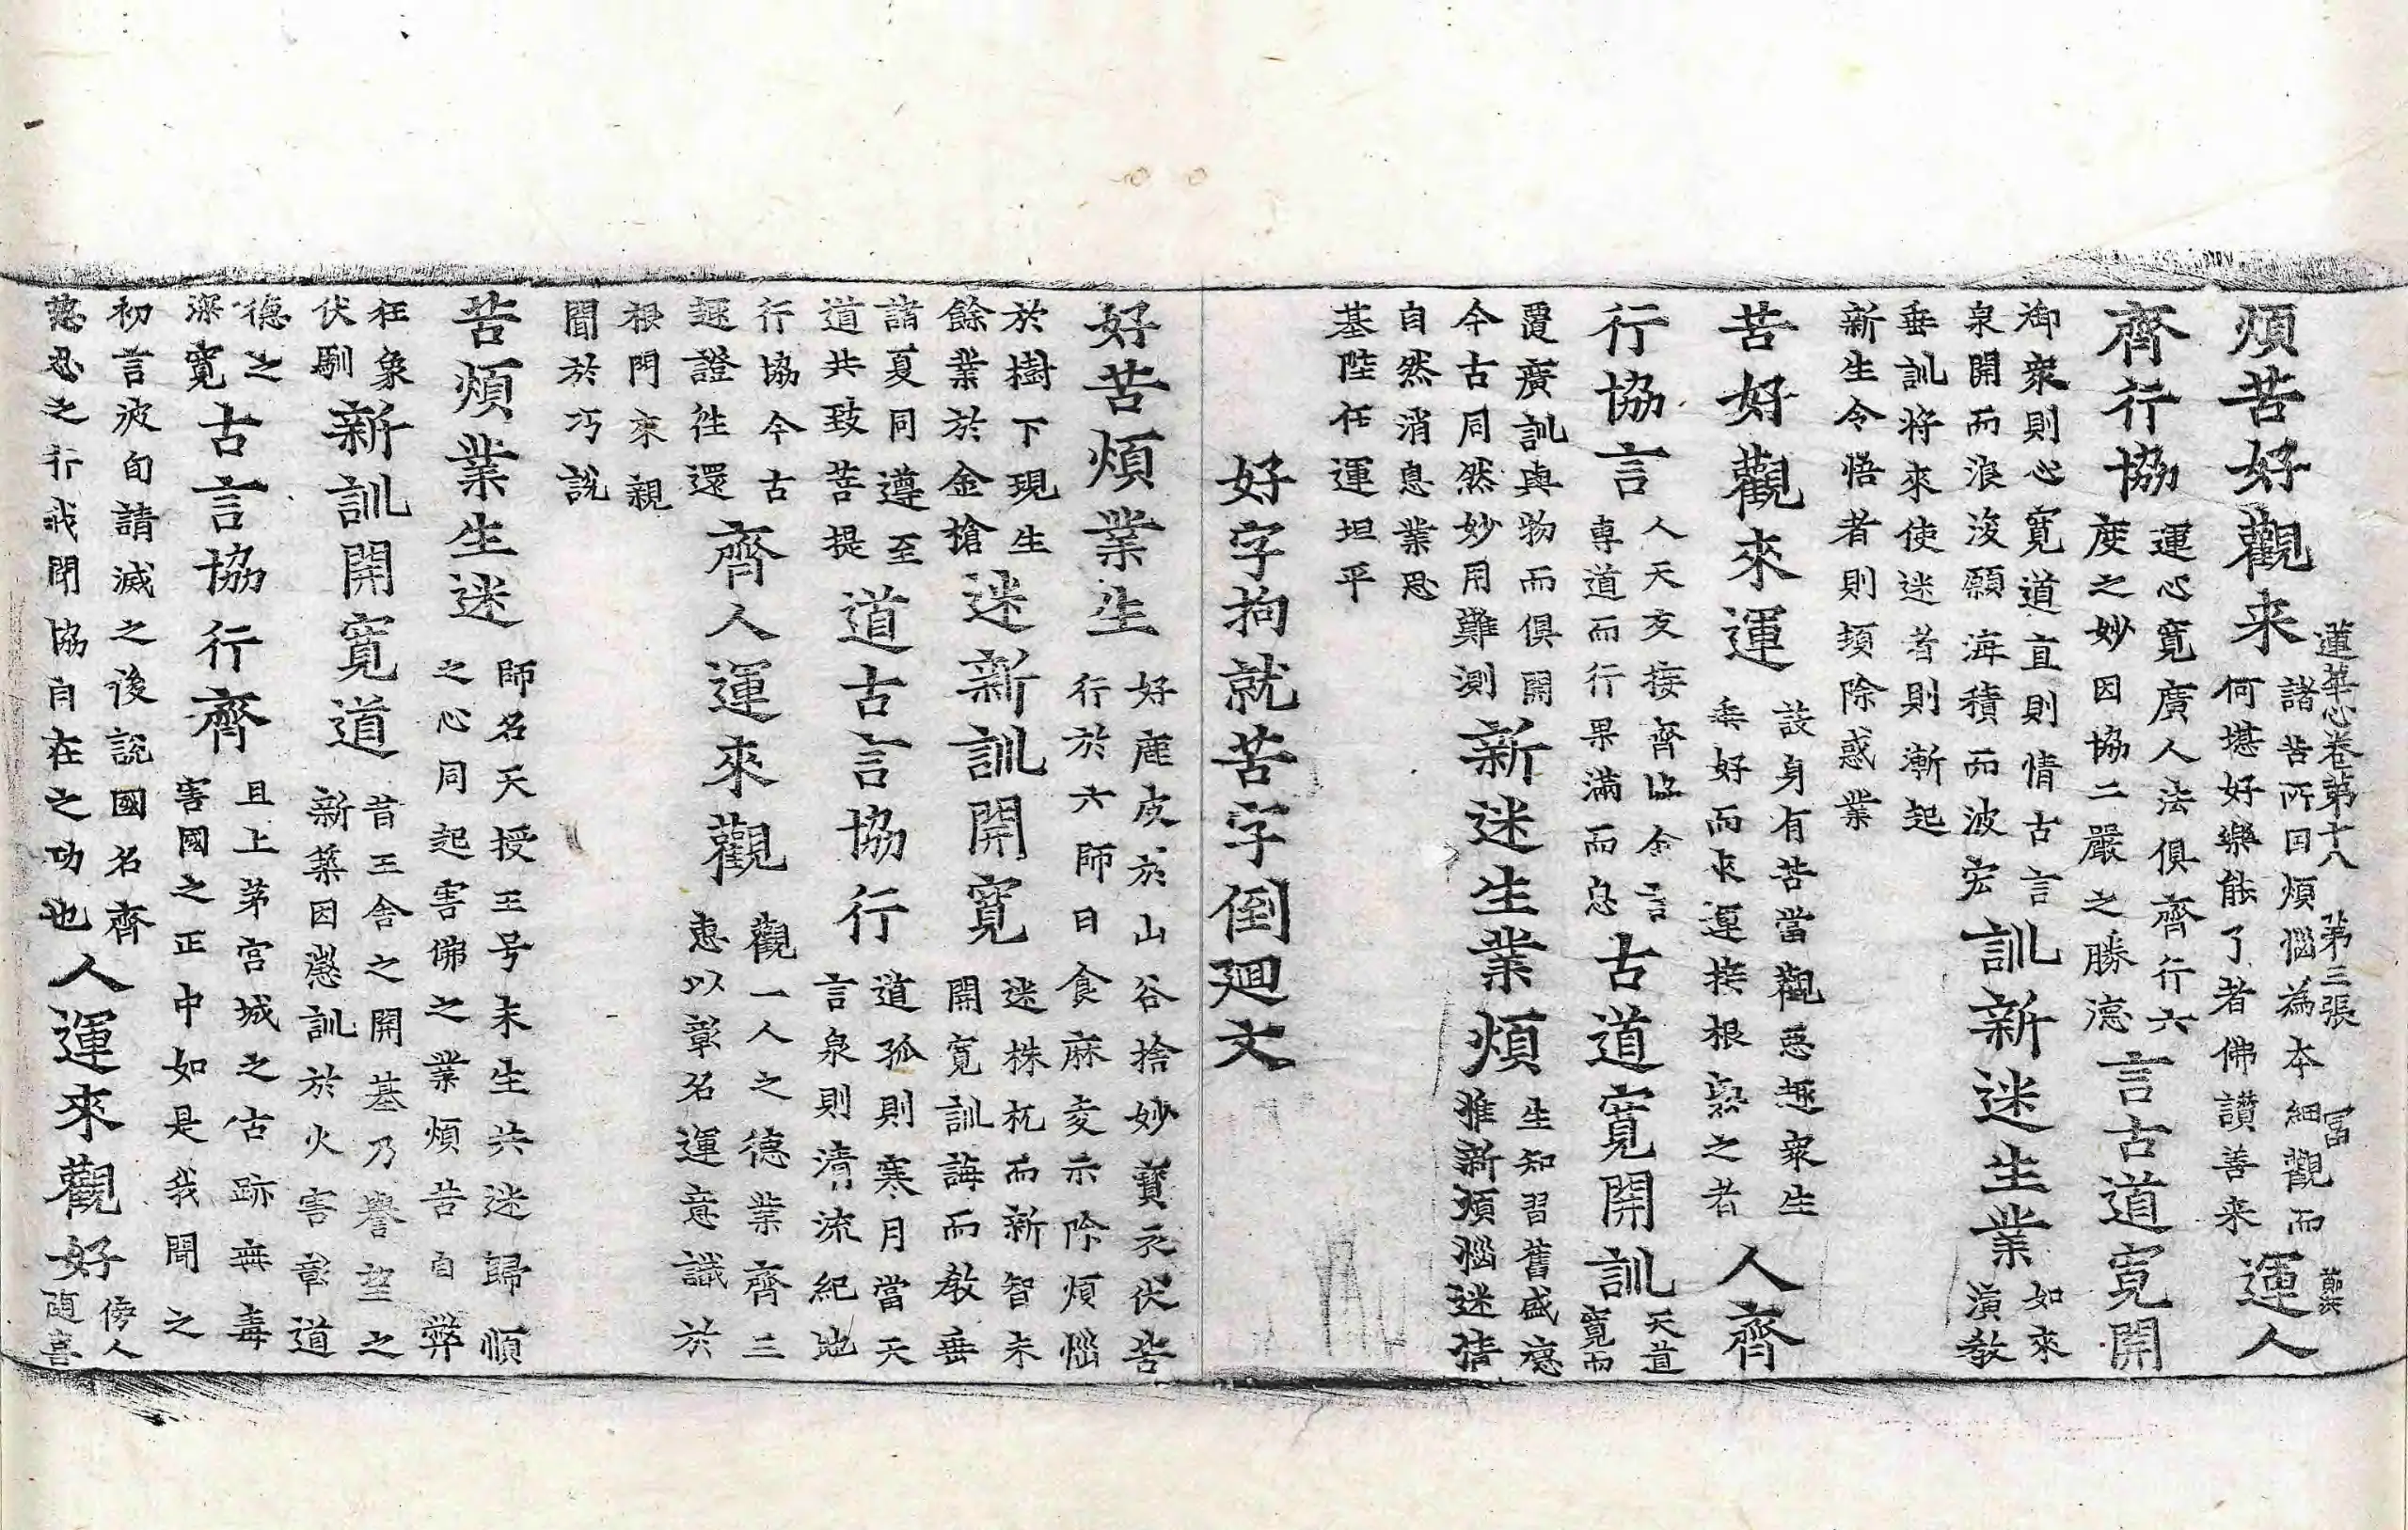 蓮華心卷第十八 第三張 冨
煩苦好觀来
諸苦所因煩惱為本細觀而
何堪好樂能了者佛讃善来
運人
齊行協
運心寛廣人法俱齊行六
度之妙因協二嚴之勝德
言古道寛開
御衆則心寛道直則情古言
泉開而浪浚願海積而波宏
訓新迷生業
如來
演教
垂訓将來使迷者則漸起
新生令悟者則頓除惑業
苦好觀來運
設身有苦當觀惡趣衆生
無好而求運接根熟之者
人齊
行協言
人天交接齊協余言
専道而行果滿而息
古道寛開訓
天道
寛而
置廣訓與物而俱開
今古同然妙用難測
新迷生業煩
生知習舊盛德
惟新煩惱迷情
自然消息業思
基陸任運坦平
好字拘就苦字倒廻文
好苦煩業生
好鹿皮於山谷捨妙寶衣伏苦
行於六師日食麻麦示除煩惱
於樹下現生
餘業於金槍
迷新訓開寛
迷株杌而新智未
開寛訓誨而教垂
諸夏同遵至
道共致菩提
道古言協行
道孤則寒月當天
言泉則清流紀地
行協今古
趣證往還
齊人運來觀
觀一人之德業齊三
惠以彰名運意識於
根門來親
聞於巧說
苦煩業生迷
師名天授王号未生共迷歸順
之心同起害佛之業煩苦自弊
狂象
伏馴
新訓開寛道
昔王舎之開基乃譽望之
新築因懲訓於火害章道
德之
深寛
古言協行齊
且上茅宮城之古跡無毒
害國之正中如是我聞之
初言波旬請滅之後説國名齊
慈忍之行我聞協自在之功也
人運來觀好
傍人
随喜